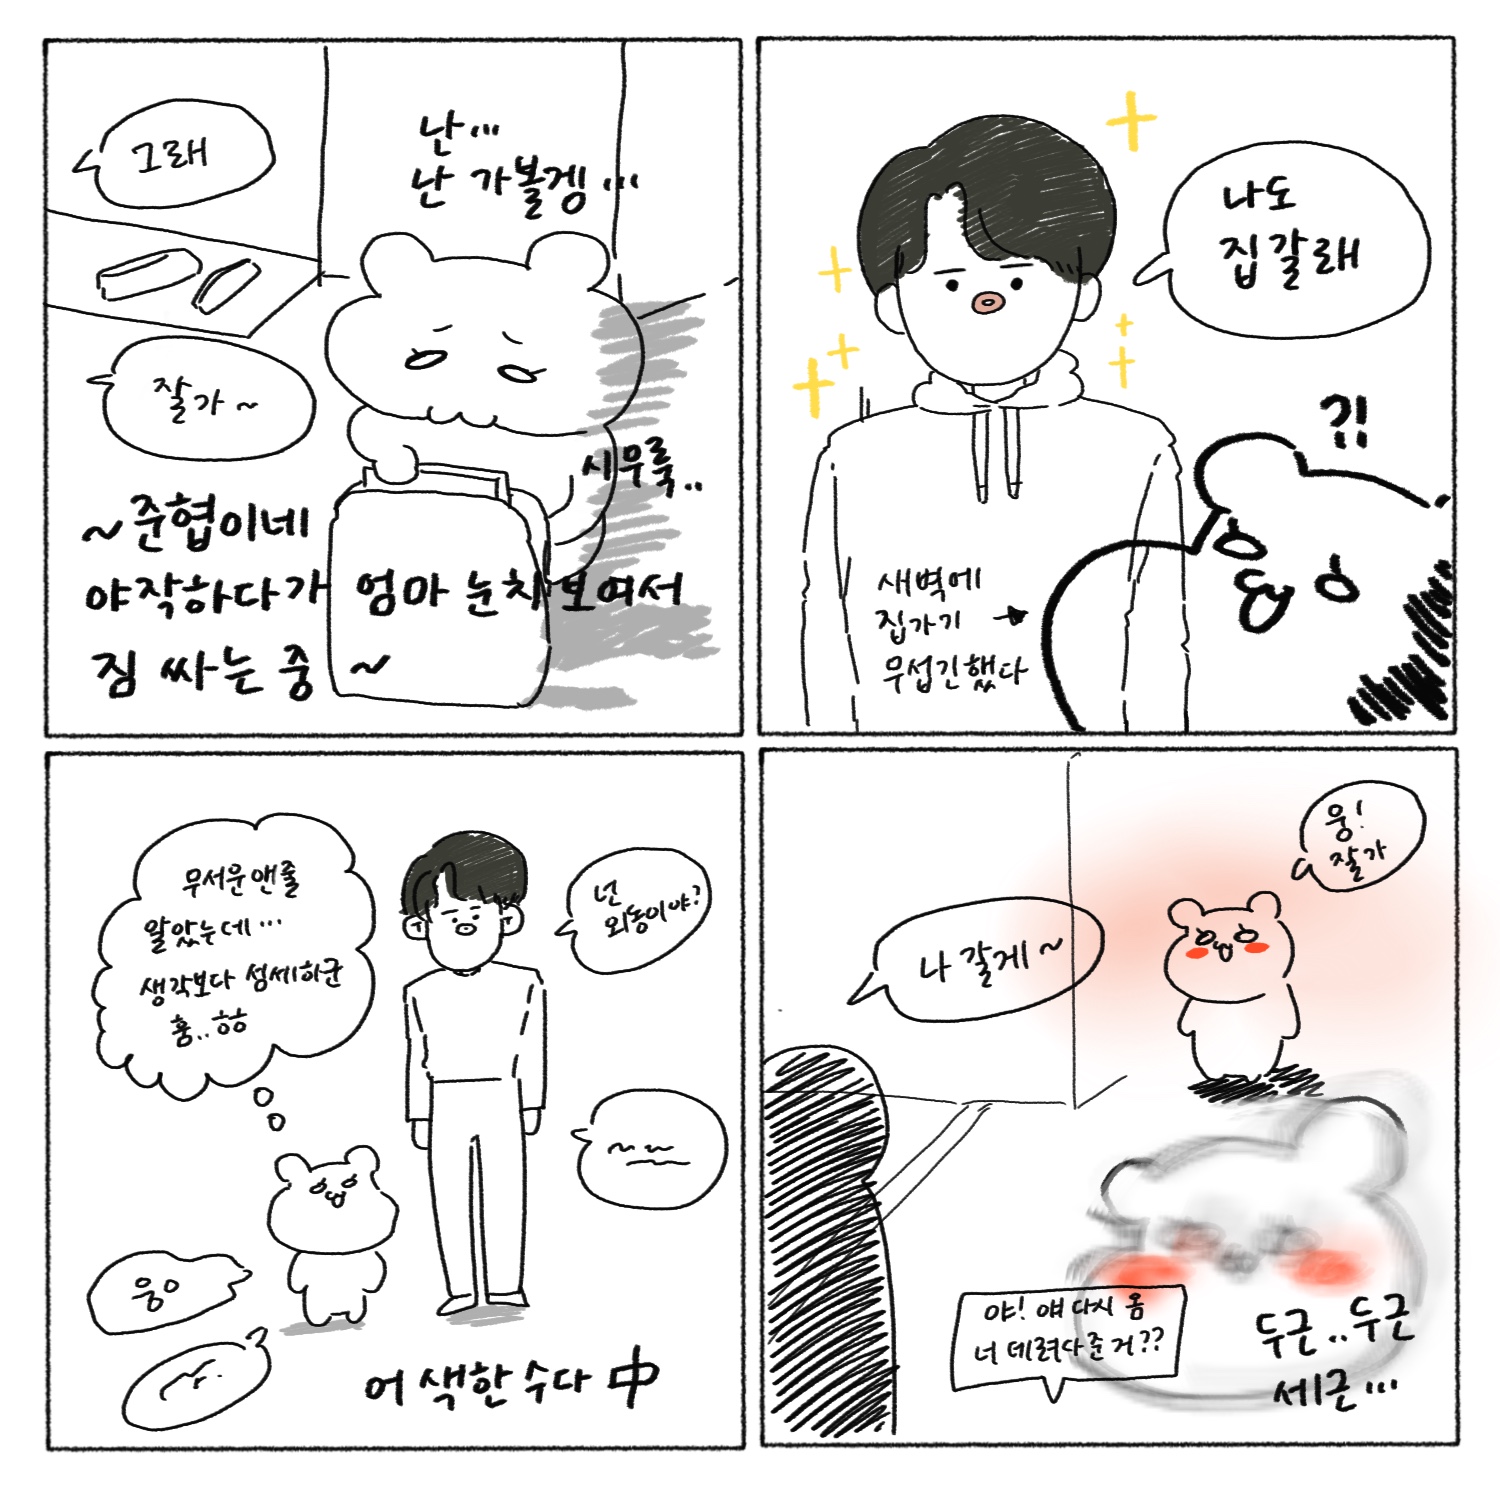 그래
난...
난 가볼겡...
잘가~
시무룩..
~준협이네
야작하다가 엄마 눈치 보여서
짐 싸는 중~
나도
집갈래
?!
새벽에
집가기
무섭긴했다
무서운앤줄
알았는데...
생각보다 섬세하군
흠..ㅎㅎ
넌
외동이야?
웅ㅇ
어색한수다 中
웅!
잘가
나 갈게~
야! 얘 다시 옴
너 데려다준거??
두근..두근
세근...